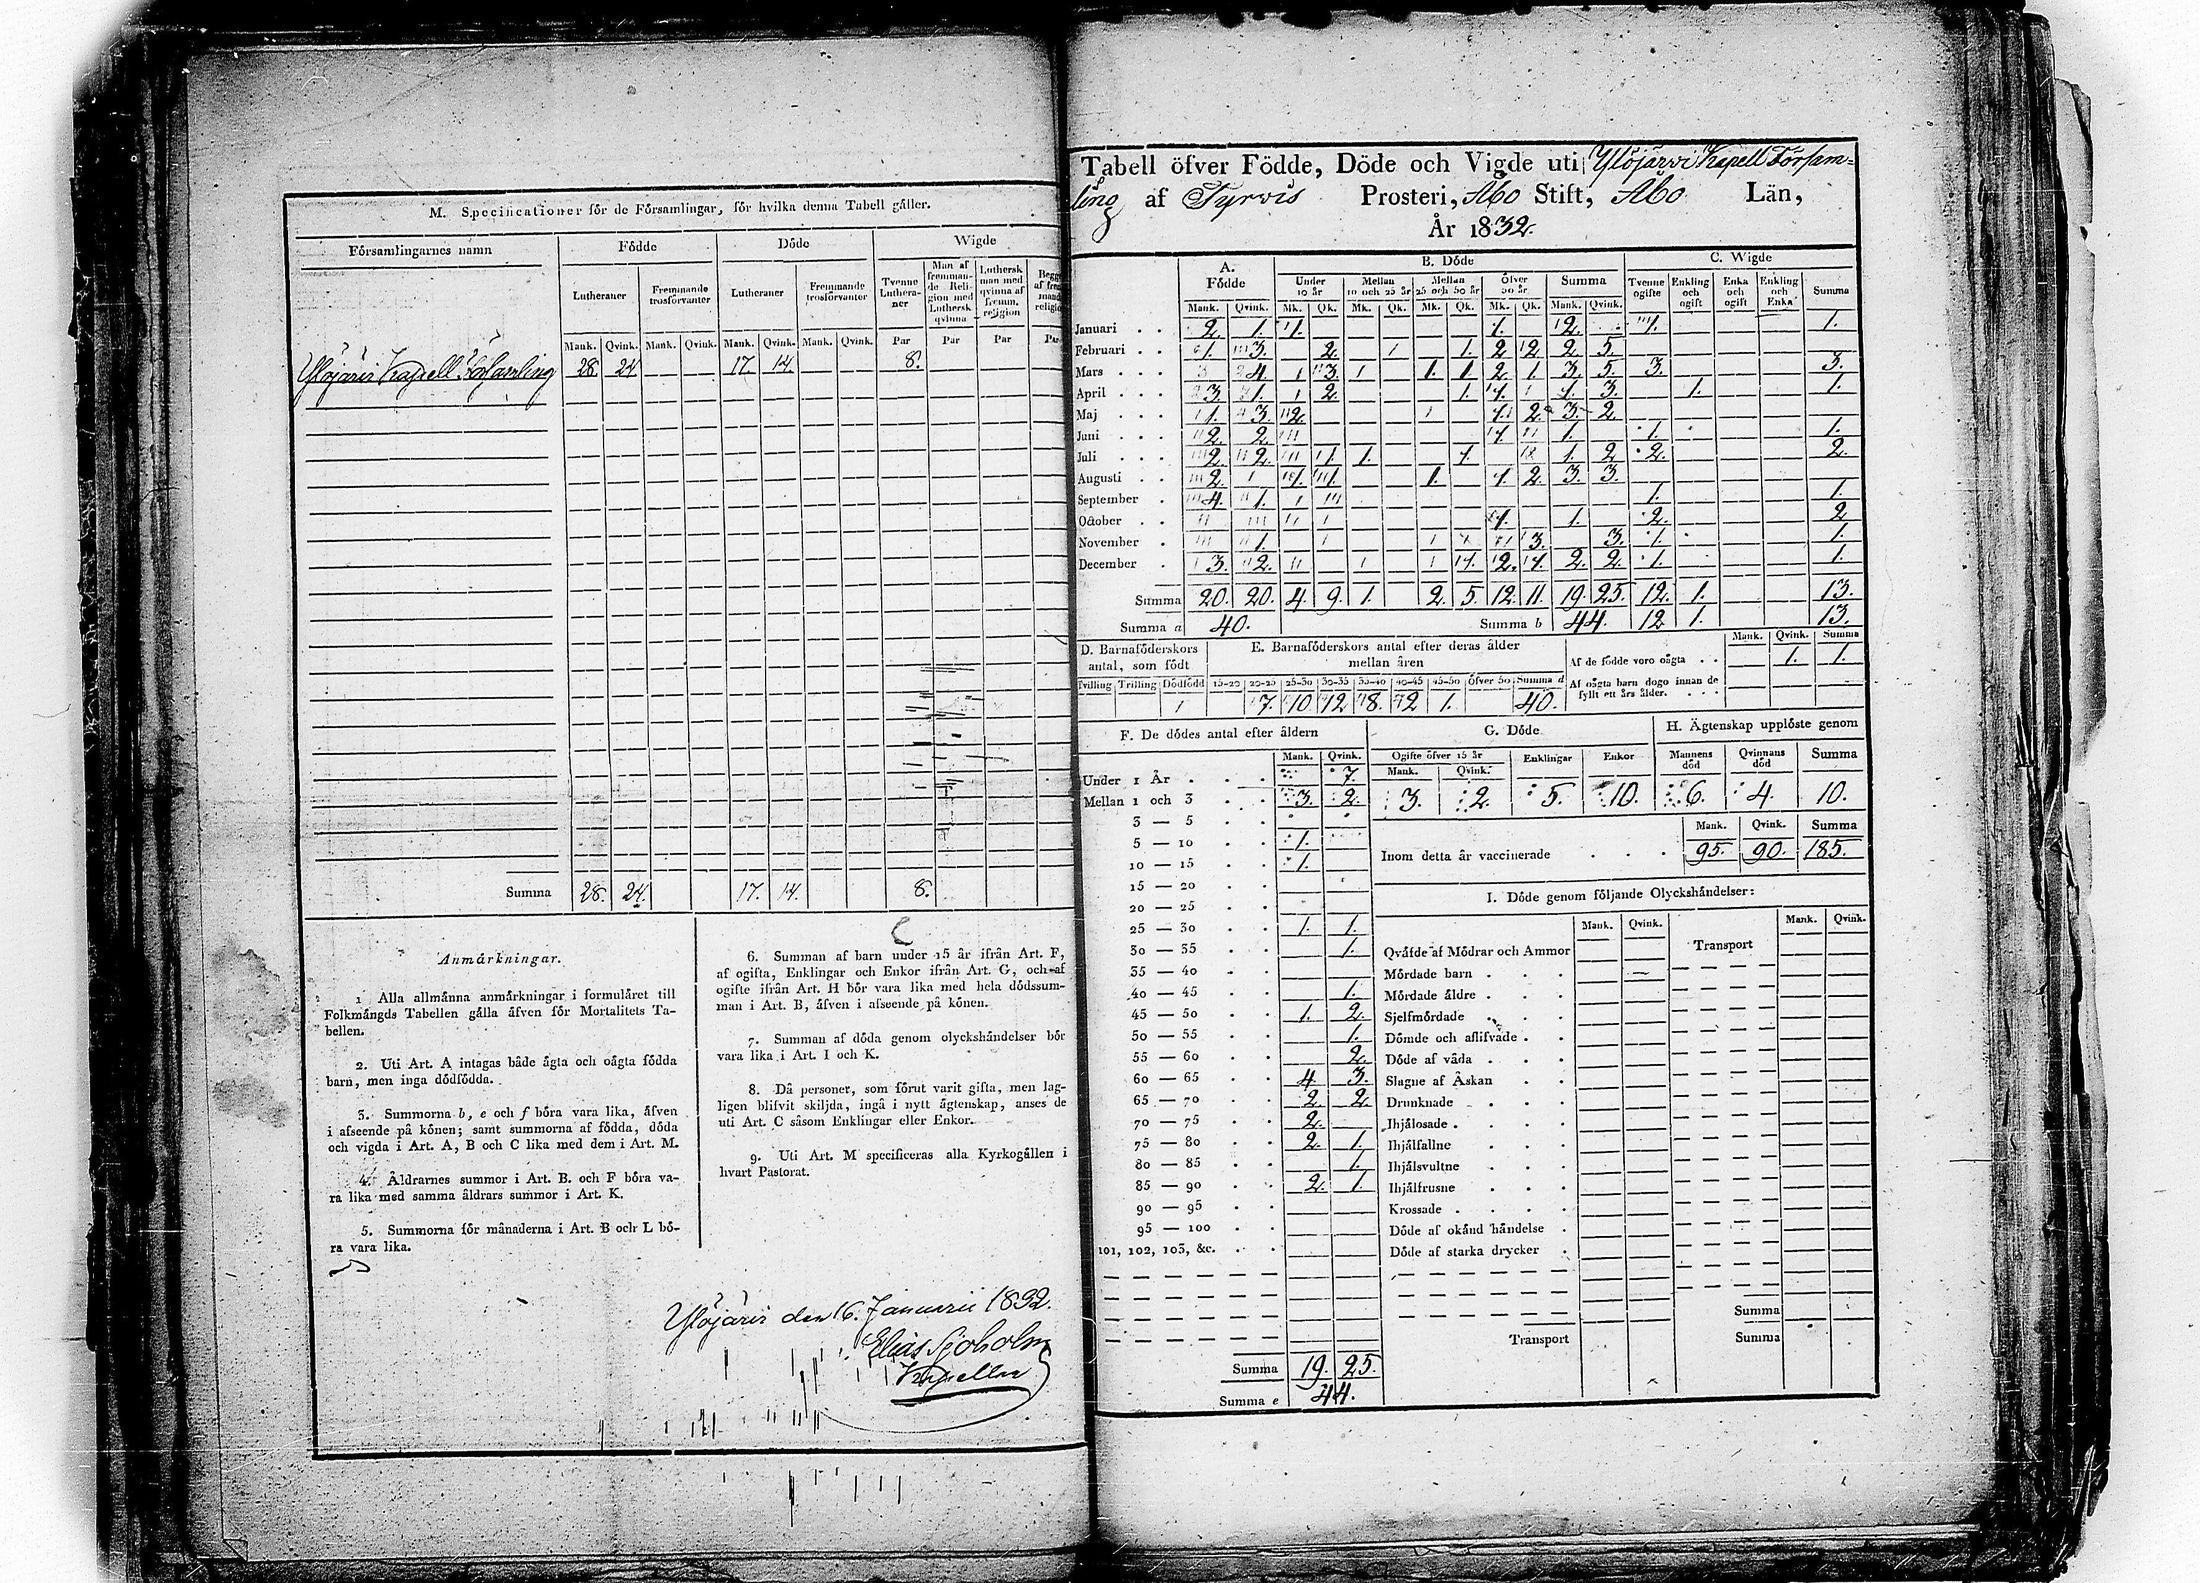 M. Specificationer för de Församlingar, för hvilka denna Tabell gäller.
Församlingarnes namn Födde Döde Wigde
Lutheraner Fremmande trosförvanter Lutheraner Fremmande trosförvanter Tvenne Lutheraner Man af fremmande Religion med Luthersk qvinna Luthersk man med qvinna af fremm. religion
Mank. Qvink. Mank. Qvink. Mank. Qvink. Mank. Qvink. Par Par Par Par
Ylöjärvi Kapell Församling 28. 24. 17. 14. 8.
Summa 28. 24. 17. 14. 8.
Anmärkningar.
1 Alla allmänna anmärkningar i formuläret till
Folkmängds Tabellen gälla äfven för Mortalitets Ta-
bellen.
2. Uti Art. A intagas både ägta och oägta födda
barn, men inga dödfödda.
3. Summorna b, e och f böra vara lika, äfven
i afseende på könen; samt summorna af födda, döda
och vigda i Art. A, B och C lika med dem i Art. M.
4. Åldrarnes summor i Art. B. och F böra va-
ra lika med samma åldrars summor i Art. K.
5. Summorna för månaderna i Art. B och L bö-
ra vara lika.
6. Summan af barn under 15 år ifrån Art. F,
af ogifta, Enklingar och Enkor ifrån Art. G, och af
ogifte ifrån Art. H bör vara lika med hela dödssum-
man i Art. B, äfven i afseende på könen.
7. Summan af döda genom olyckshändelser bör
vara lika i Art. I och K.
8. Då personer, som förut varit gifta, men lag-
ligen blifvit skiljda, ingå i nytt ägtenskap, anses de
uti Art. C såsom Enklingar eller Enkor.
9. Uti Art. M specificeras alla Kyrkogällen i
hvart Pastorat.
Ylöjärvi den 16. Januarii 1832.
Elias Sjöholm
Kapellan
Tabell öfver Födde, Döde och Vigde uti Ylöjärvi Kapell Församling
af Tyrvis Prosteri, Åbo Stift, Åbo Län,
År 1832.
A. Födde B. Döde C. Wigde
Under 10 år Mellan 10 och 25 år Mellan 25 och 50 år Öfver 50 år Summa Tvenne ogifte Enkling och ogift Enka och ogift Enkling och Enka Summa
Mank. Qvink. Mk. Qk. Mk. Qk. Mk. Qk. Mk. Qk. Mank. Qvink.
Januari 2. 1. 1. 1. 2. 1. 1.
Februari 1. 3. 2. 1. 2. 2. 2. 5.
Mars 4. 3. 1 1. 1. 2. 1. 3. 5. 3. 3.
April 3. 1. 2. 1. 1. 1. 3. 1. 1.
Maj 1. 3. 2. 1. 2. 3. 2.
Juni 2. 2. 1. 1. 1. 1.
Juli 2. 2. 1. 1. 1. 1. 2. 2. 2.
Augusti 2. 1. 1. 1. 1. 2. 3. 3.
September 4. 1. 1. 1.
October 1. 1. 2. 2
November 1. 3. 3. 1. 1.
December 3. 2. 1. 2. 1. 2. 2. 1. 1.
Summa 20. 20. 4. 9. 1. 2. 5. 12. 11. 19. 25. 12. 1. 13.
Summa a 40. Summa b 44. 12 1. 13.
D. Barnaföderskors antal, som födt
Tvilling Trilling Dödfödd
1
E. Barnaföderskors antal efter deras ålder mellan åren
15-20 20-25 25-30 30-35 35-40 40-45 45-50 Öfver 50 Summa d
7. 10 12 8. 2 1. 40.
Mank. Qvink. Summa
Af de födde voro oägta . . 1. 1.
Af oägta barn dogo innan de
fyllt ett års ålder. . . .
F. De dödes antal efter åldern
Mank. Qvink.
Under 1 År . . . 7.
Mellan 1 och 3 . . 3. 2.
3 — 5 . .
5 — 10 . . 1.
10 — 15 . . 1.
15 — 20 . .
20 — 25 . .
25 — 30 . . 1. 1.
30 — 35 . . 1.
35 — 40 . .
40 — 45 . . 1.
45 — 50 . . 1. 2.
50 — 55 . . 1.
55 — 60 . . 2.
60 — 65 . . 4. 3.
65 — 70 . . 2. 2.
70 — 75 . . 2.
75 — 80 . . 2. 1.
80 — 85 . . 1.
85 — 90 . . 2. 1.
90 — 95 . .
95 — 100 . .
101, 102, 103, &c. . .
Summa 19. 25.
Summa e 44.
G. Döde
Ogifte öfver 15 år Enklingar Enkor
Mank. Qvink.
3. 2. 5. 10.
H. Ägtenskap upplöste genom
Mannens död Qvinnans död Summa
6. 4. 10.
Mank. Qvink. Summa
Inom detta år vaccinerade . . . 95. 90. 185.
I. Döde genom följande Olyckshändelser:
Mank. Qvink. Transport Mank. Qvink.
Qväfde af Mödrar och Ammor
Mördade barn . . .
Mördade äldre . . .
Sjelfmördade . . .
Dömde och aflifvade . .
Döde af våda . . .
Slagne af Åskan . .
Drunknade . . .
Ihjälosade . . . .
Ihjälfallne . . .
Ihjälsvultne . . .
Ihjälfrusne . . .
Krossade . . . .
Döde af okänd händelse .
Döde af starka drycker .
Summa
Transport Summa